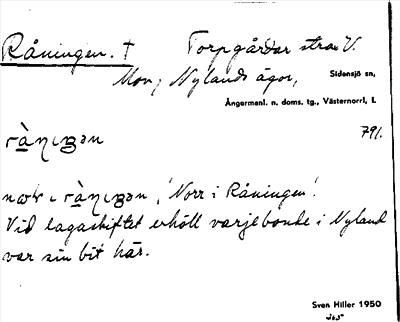 Råningen. † Torpgårdar strax V.
Mon, Nylands ägor, Sidensjö sn,
Ångermanl. n. doms. tg., Västernorrl. l.
791.
'Norr i Råningen'.
Vid lagaskiftet erhöll varje bonde i Nyland
var sin bit här.
Sven Hiller 1950